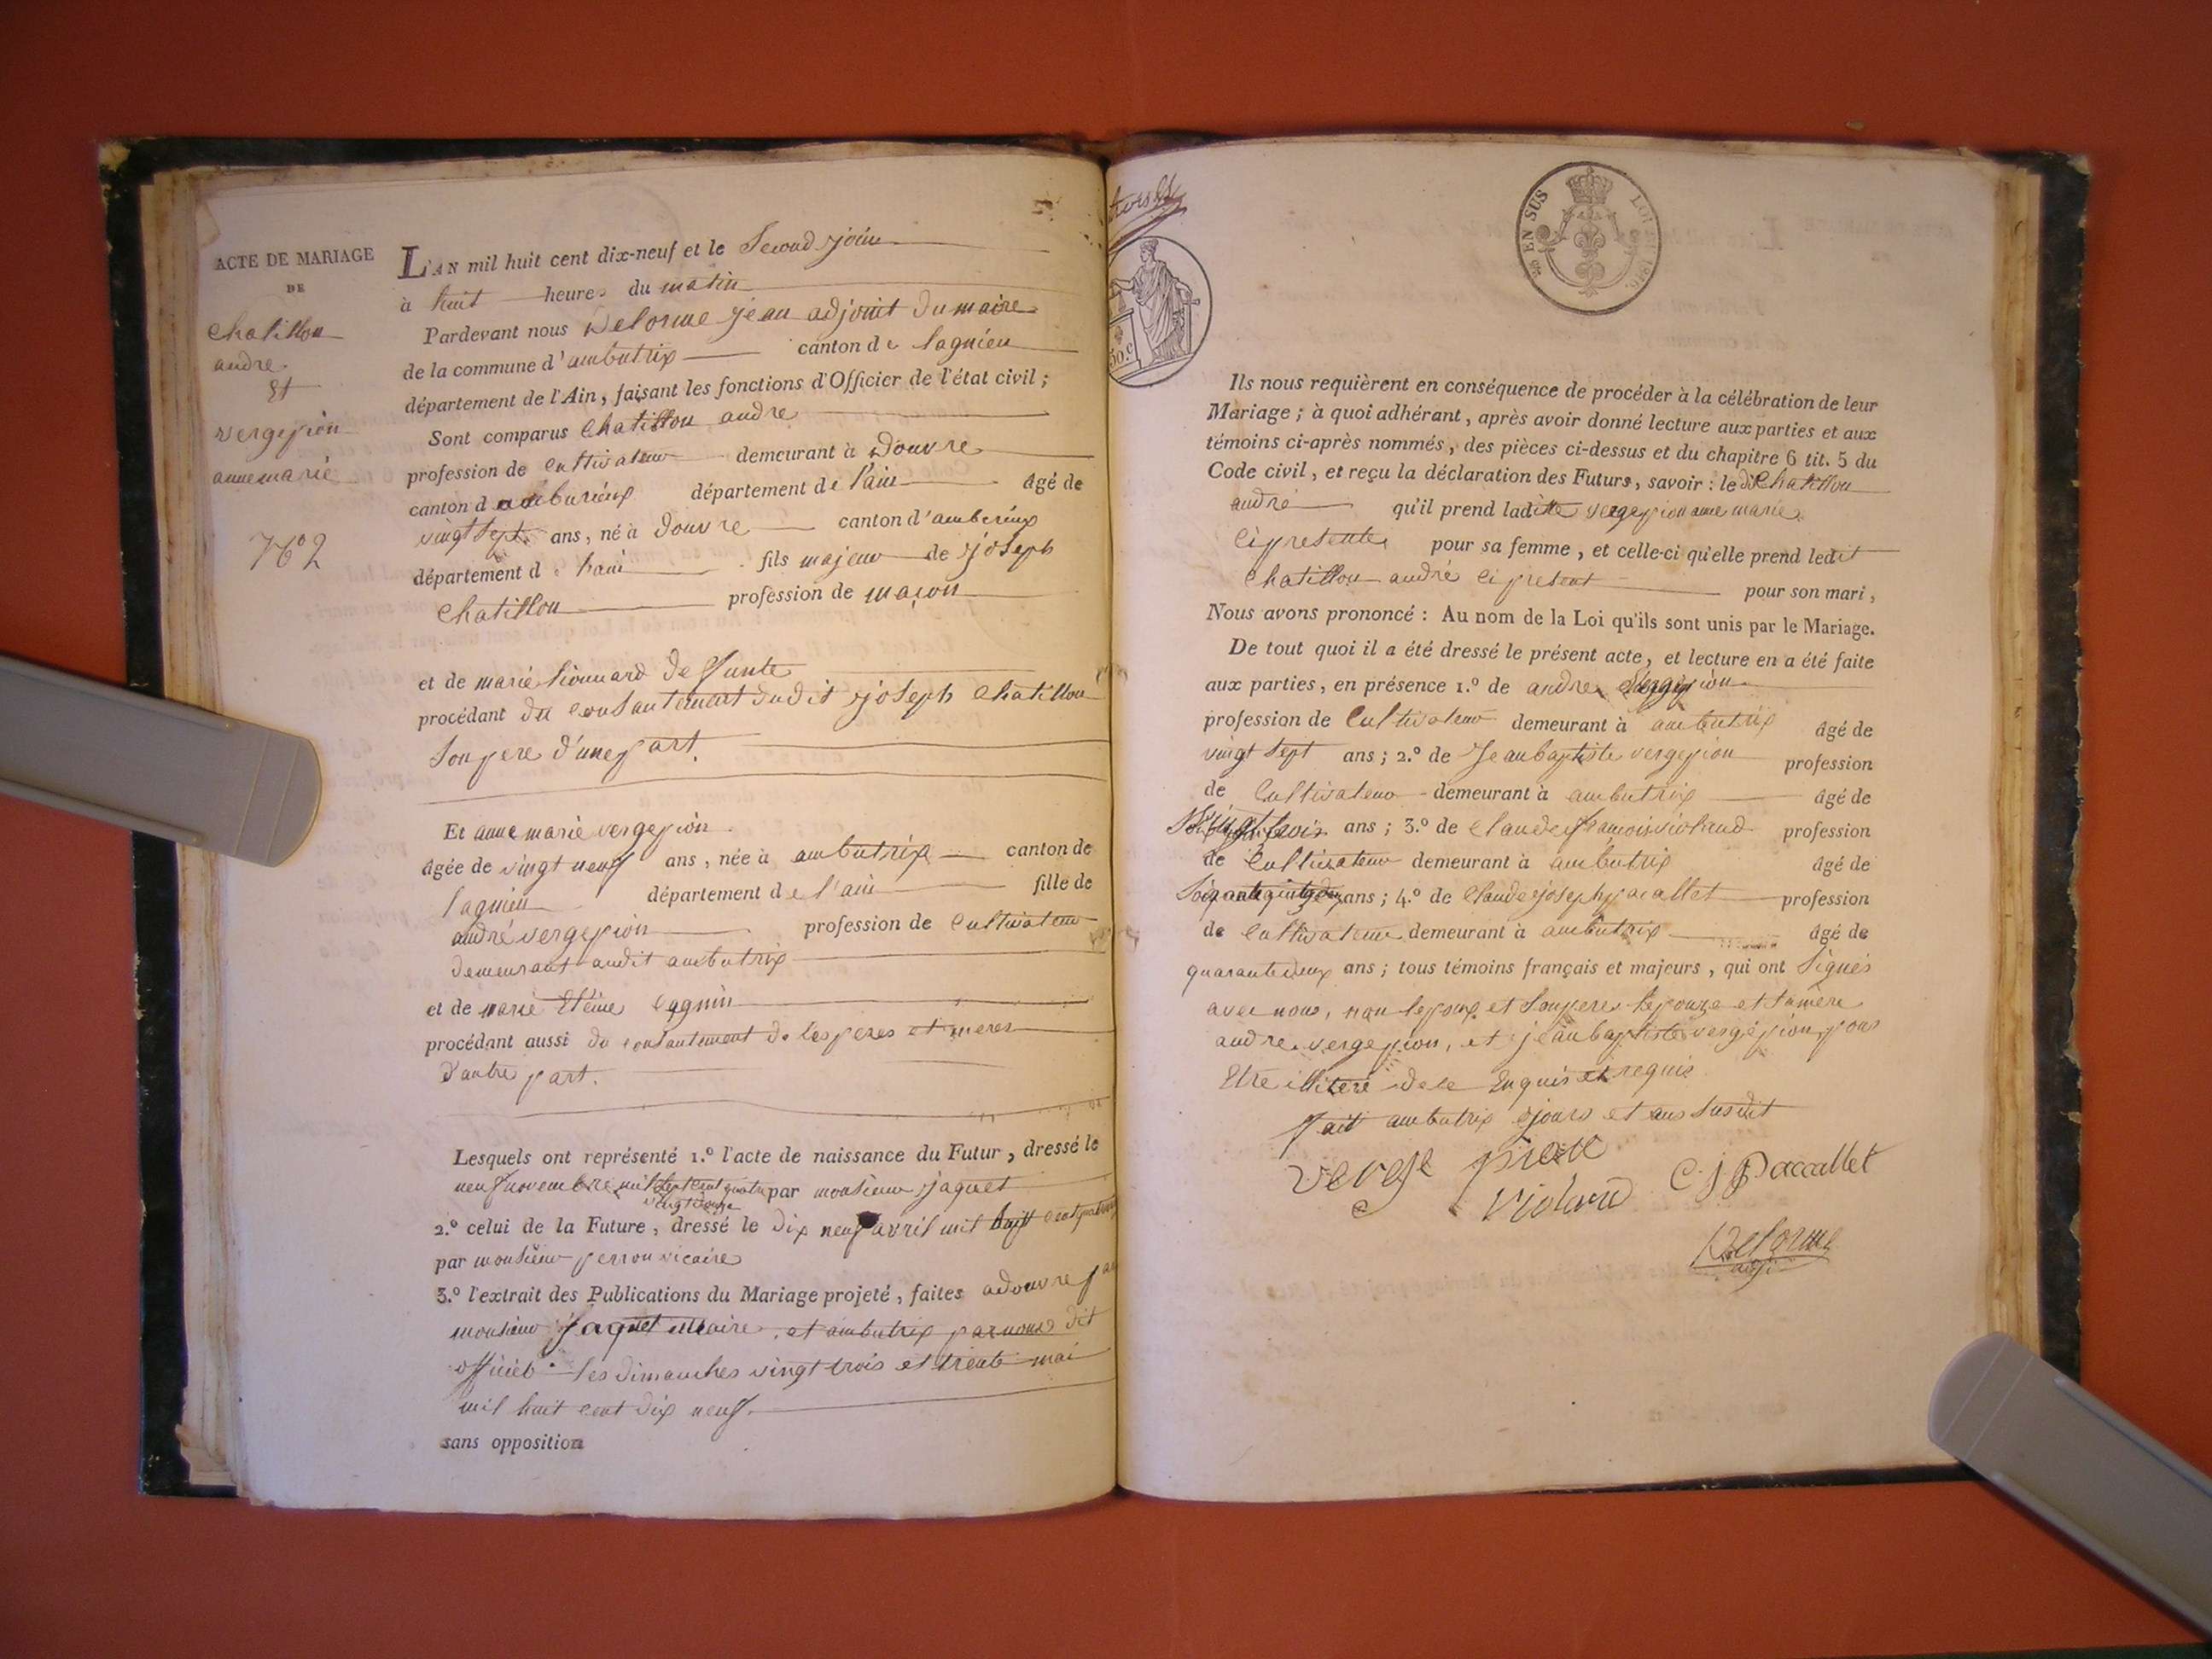 ACTE DE MARIAGE
DE
Chatillon
andre
Et
vergepion
anne marie
N° 2
L'AN mil huit cent dix-neuf et le Second join
à huit heures du matin
Pardevant nous Delorme jean adjoint du maire
de la commune d'ambutrix canton de lagnieu
département de l'Ain, faisant les fonctions d'Officier de l'état civil ;
Sont comparus Chatillon andre
profession de Cultivateur demeurant à Douvre
canton d'amburieux département de l'ain âgé de
vingt sept ans, né à Douvre canton d'amberieux
département d fils majeur de joseph
Chatillon profession de maçon
et de marie defunte
procédant du consantement dudit joseph Chatillon
Son pere d'une part.
Et anne marie vergepion
âgée de vingt neuf ans, née à ambutrix canton de
lagnieu département de l'ain fille de
andré vergepion profession de Cultivateur
demeurant audit ambutrix
et de marie
procédant aussi du consantement de ses peres et meres
d'autre part.
Lesquels ont représenté 1.º l'acte de naissance du Futur, dressé le
neuf novembre mil sept cent quatre par monsieur jaquet
vingt onze
2.º celui de la Future, dressé le dix neuf avril mil
par monsieur perron vicaire
3.º l'extrait des Publications du Mariage projeté, faites a douvre par
monsieur jaquet maire, et ambutrix par nous dit
officié les dimanches vingt trois et trente mai
mil huit cent dix neuf.
sans opposition
EN SUS
LOI 1816.
50.c
Ils nous requièrent en conséquence de procéder à la célébration de leur
Mariage ; à quoi adhérant, après avoir donné lecture aux parties et aux
témoins ci-après nommés, des pièces ci-dessus et du chapitre 6 tit. 5 du
Code civil, et reçu la déclaration des Futurs, savoir : le dit Chatillon
andré qu'il prend ladite vergepion anne marie
Ci presente pour sa femme, et celle-ci qu'elle prend ledit
Chatillon andré ci present pour son mari,
Nous avons prononcé : Au nom de la Loi qu'ils sont unis par le Mariage.
De tout quoi il a été dressé le présent acte, et lecture en a été faite
aux parties, en présence 1.º de andre vergepion
profession de Cultivateur demeurant à ambutrix âgé de
vingt sept ans ; 2.º de Jean baptiste vergepion profession
de Cultivateur demeurant à ambutrix âgé de
vingt trois ans ; 3.º de Claude françois violand profession
de Cultivateur demeurant à ambutrix âgé de
ans ; 4.º de Claude joseph pacallet profession
de Cultivateur demeurant à ambutrix âgé de
quarante deux ans ; tous témoins français et majeurs, qui ont Signés
avec nous, non lepoux et Son pere lepouze et Sa mere
andre vergepion, et jean baptiste vergepion pour
Etre illiteré de ce Enquis et requis
fait ambutrix jours et ans susdit
Violand
C. j Paccallet
Delorme
adj.